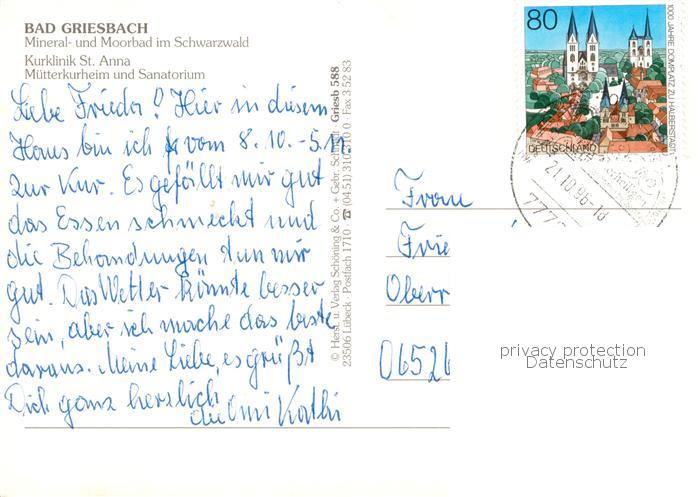 BAD GRIESBACH
Mineral- und Moorbad im Schwarzwald
Kurklinik St. Anna
Mütterkurheim und Sanatorium
Liebe Frieda! Hier in diesem
Haus bin ich vom 8.10.-5.11.
zur Kur. Es gefällt mir gut
das Essen schmeckt und
die Behandlungen tun mir
gut. Das Wetter könnte besser
sein, aber ich mache das beste
daraus. Meine Liebe, es grüßt
Dich ganz herzlich
Kathi
© Herst. u. Verlag Schöning & Co. + Gebr. Schmidt · Griesb 588
23506 Lübeck · Postfach 1710 · ☎ (04 51) 3 10 0 · Fax 3 52 83
80
1000 JAHRE DOMPLATZ ZU HALBERSTADT
DEUTSCHLAND
21.10.96-18
7777
Frau
Frie
Oberr
06526
privacy protection
Datenschutz